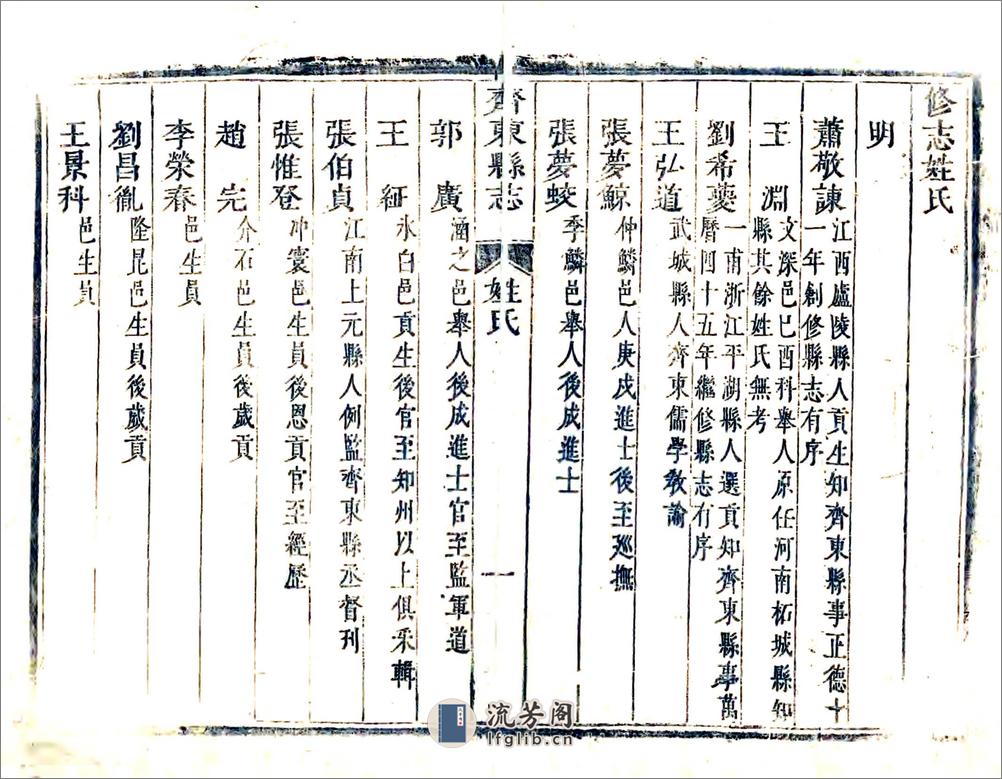 修志姓氏
明
蕭敬諌 江西廬陵縣人貢生知齊東縣事正德十
一年創修縣志有序
王淵 文深邑己酉科舉人原任河南柘城縣知
縣其餘姓氏無考
劉希夔 一甫浙江平湖縣人選貢知齊東縣事萬
曆四十五年繼修縣志有序
王弘道 武城縣人齊東儒學教諭
張夢鯨 仲鱗邑人庚戌進士後至廵撫
張夢蛟 季鱗邑舉人後成進士
齊東縣志 姓氏 一
郭廣 涵之邑舉人後成進士官至監軍道
王紝 氷白邑貢生後官至知州以上俱采輯
張伯貞 江南上元縣人例監齊東縣丞督刊
張惟登 冲寰邑生員後恩貢官至經歷
趙完 介石邑生員後歲貢
李榮春 邑生員
劉昌胤 隆昆邑生員後歲貢
王景科 邑生員
流芳阁
lfglib.cn